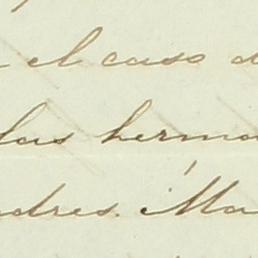 el caso d
las herma
adres. Ma